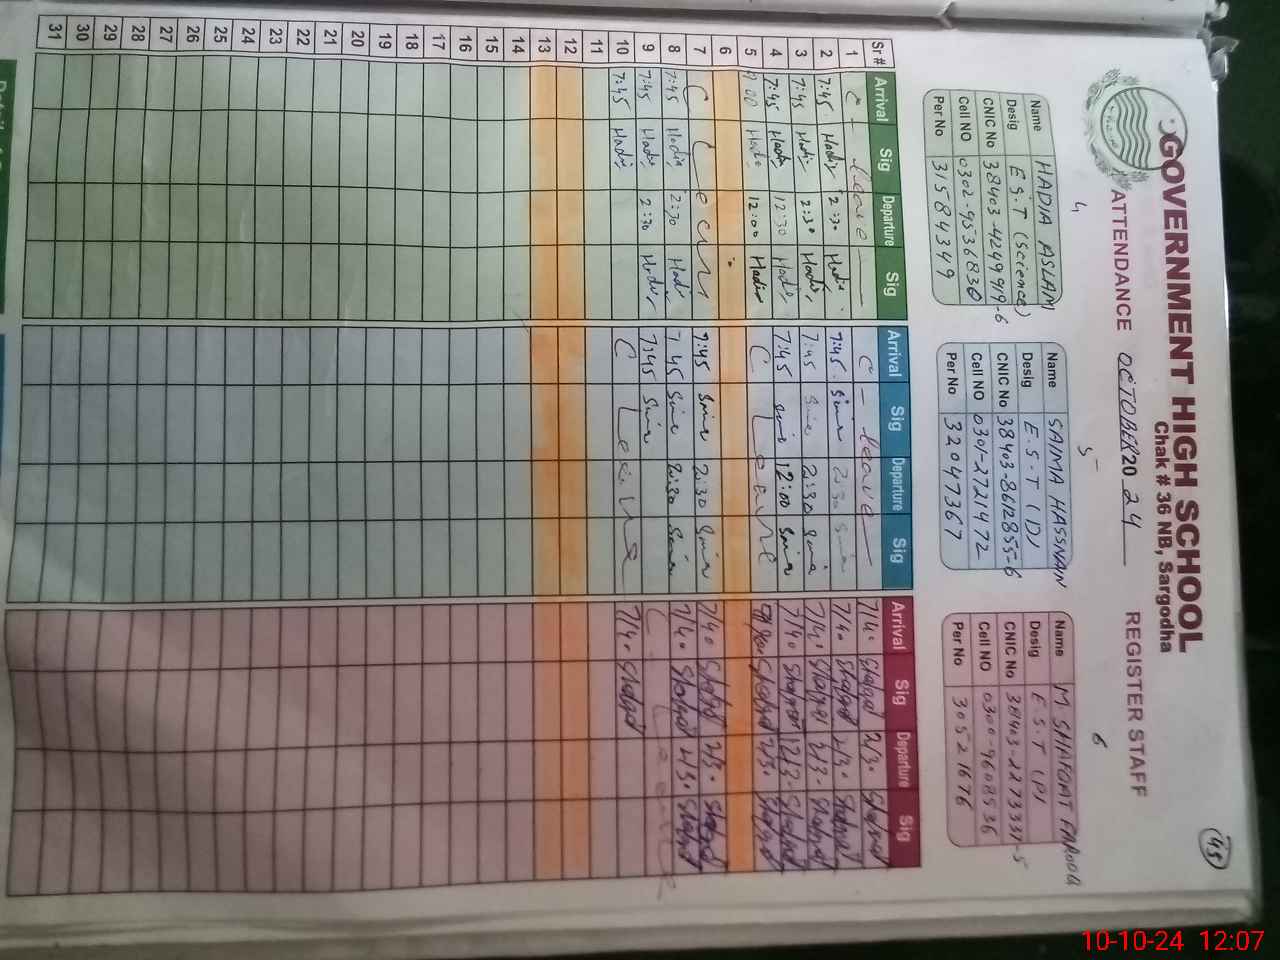 45
GOVERNMENT HIGH SCHOOL
Chak # 36 NB, Sargodha
ATTENDANCE OCTOBER 20 24 REGISTER STAFF
4 5 6
Name HADIA ASLAM
Desig E.S.T (Science)
CNIC No 38403-4249919-6
Cell NO 0302-9536830
Per No 31584349
Name SAIMA HASSNAIN
Desig E.S-T (D)
CNIC No 38403-8612855-6
Cell NO 0301-2721472
Per No 32047367
Name M SHAFQAT FAROOQ
Desig E.S.T (P)
CNIC No 38403-2273337-5
Cell NO 0300-9608536
Per No 30521676
Sr# Arrival Sig Departure Sig Arrival Sig Departure Sig Arrival Sig Departure Sig
1 C - leave C - leave 7/40 Shafqat 2/30 Shafqat
2 7:45 Hadia 2:30 Hadia 7:45 Saima 2:30 Saima 7/40 Shafqat 2/30 Shafqat
3 7:45 Hadia 2:30 Hadia 7:45 Saima 2:30 Saima 7/40 Shafqat 2/30 Shafqat
4 7:45 Hadia 12:30 Hadia 7:45 Saima 12:00 Saima 7/40 Shafqat 12/30 Shafqat
5 9:00 Hadia 12:00 Hadia C Leave Shafqat 2/30 Shafqat
6
7 C Leave 7:45 Saima 2:30 Saima 7/40 Shafqat 2/30 Shafqat
8 7:45 Hadia 2:30 Hadia 7:45 Saima 2:30 Saima 7/40 Shafqat 2/30 Shafqat
9 7:45 Hadia 2:30 Hadia 7:45 Saima C Leave
10 7:45 Hadia C Leave 7/40 Shafqat
11
12
13
14
15
16
17
18
19
20
21
22
23
24
25
26
27
28
29
30
31
10-10-24 12:07